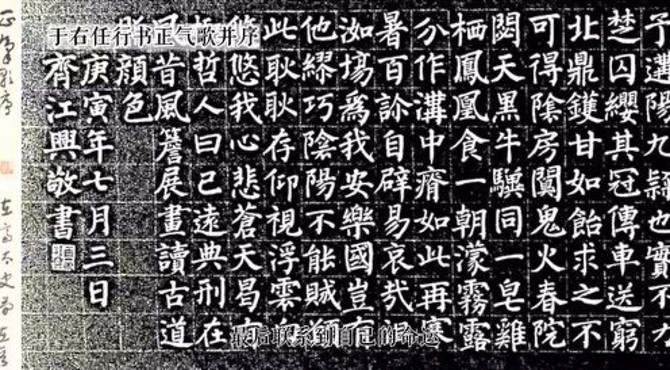 于右任行书正气歌并序
遘陽九隸也實不力
楚囚纓其冠傳車送窮
北鼎鑊甘如飴求之不
可得陰房闃鬼火春院
閟天黑牛驥同一皂雞
栖鳳凰食一朝濛霧露
分作溝中瘠如此再寒
暑百沴自辟易哀哉
洳塲為我安樂國豈有
他繆巧陰陽不能賊顧
此耿耿存仰視浮雲白
悠我心悲蒼天曷有
哲人日已遠典刑在
昔風簷展書讀古道
顏色
庚寅年七月三日
齊江興敬書
正氣歌序
最后联系到自己的命运